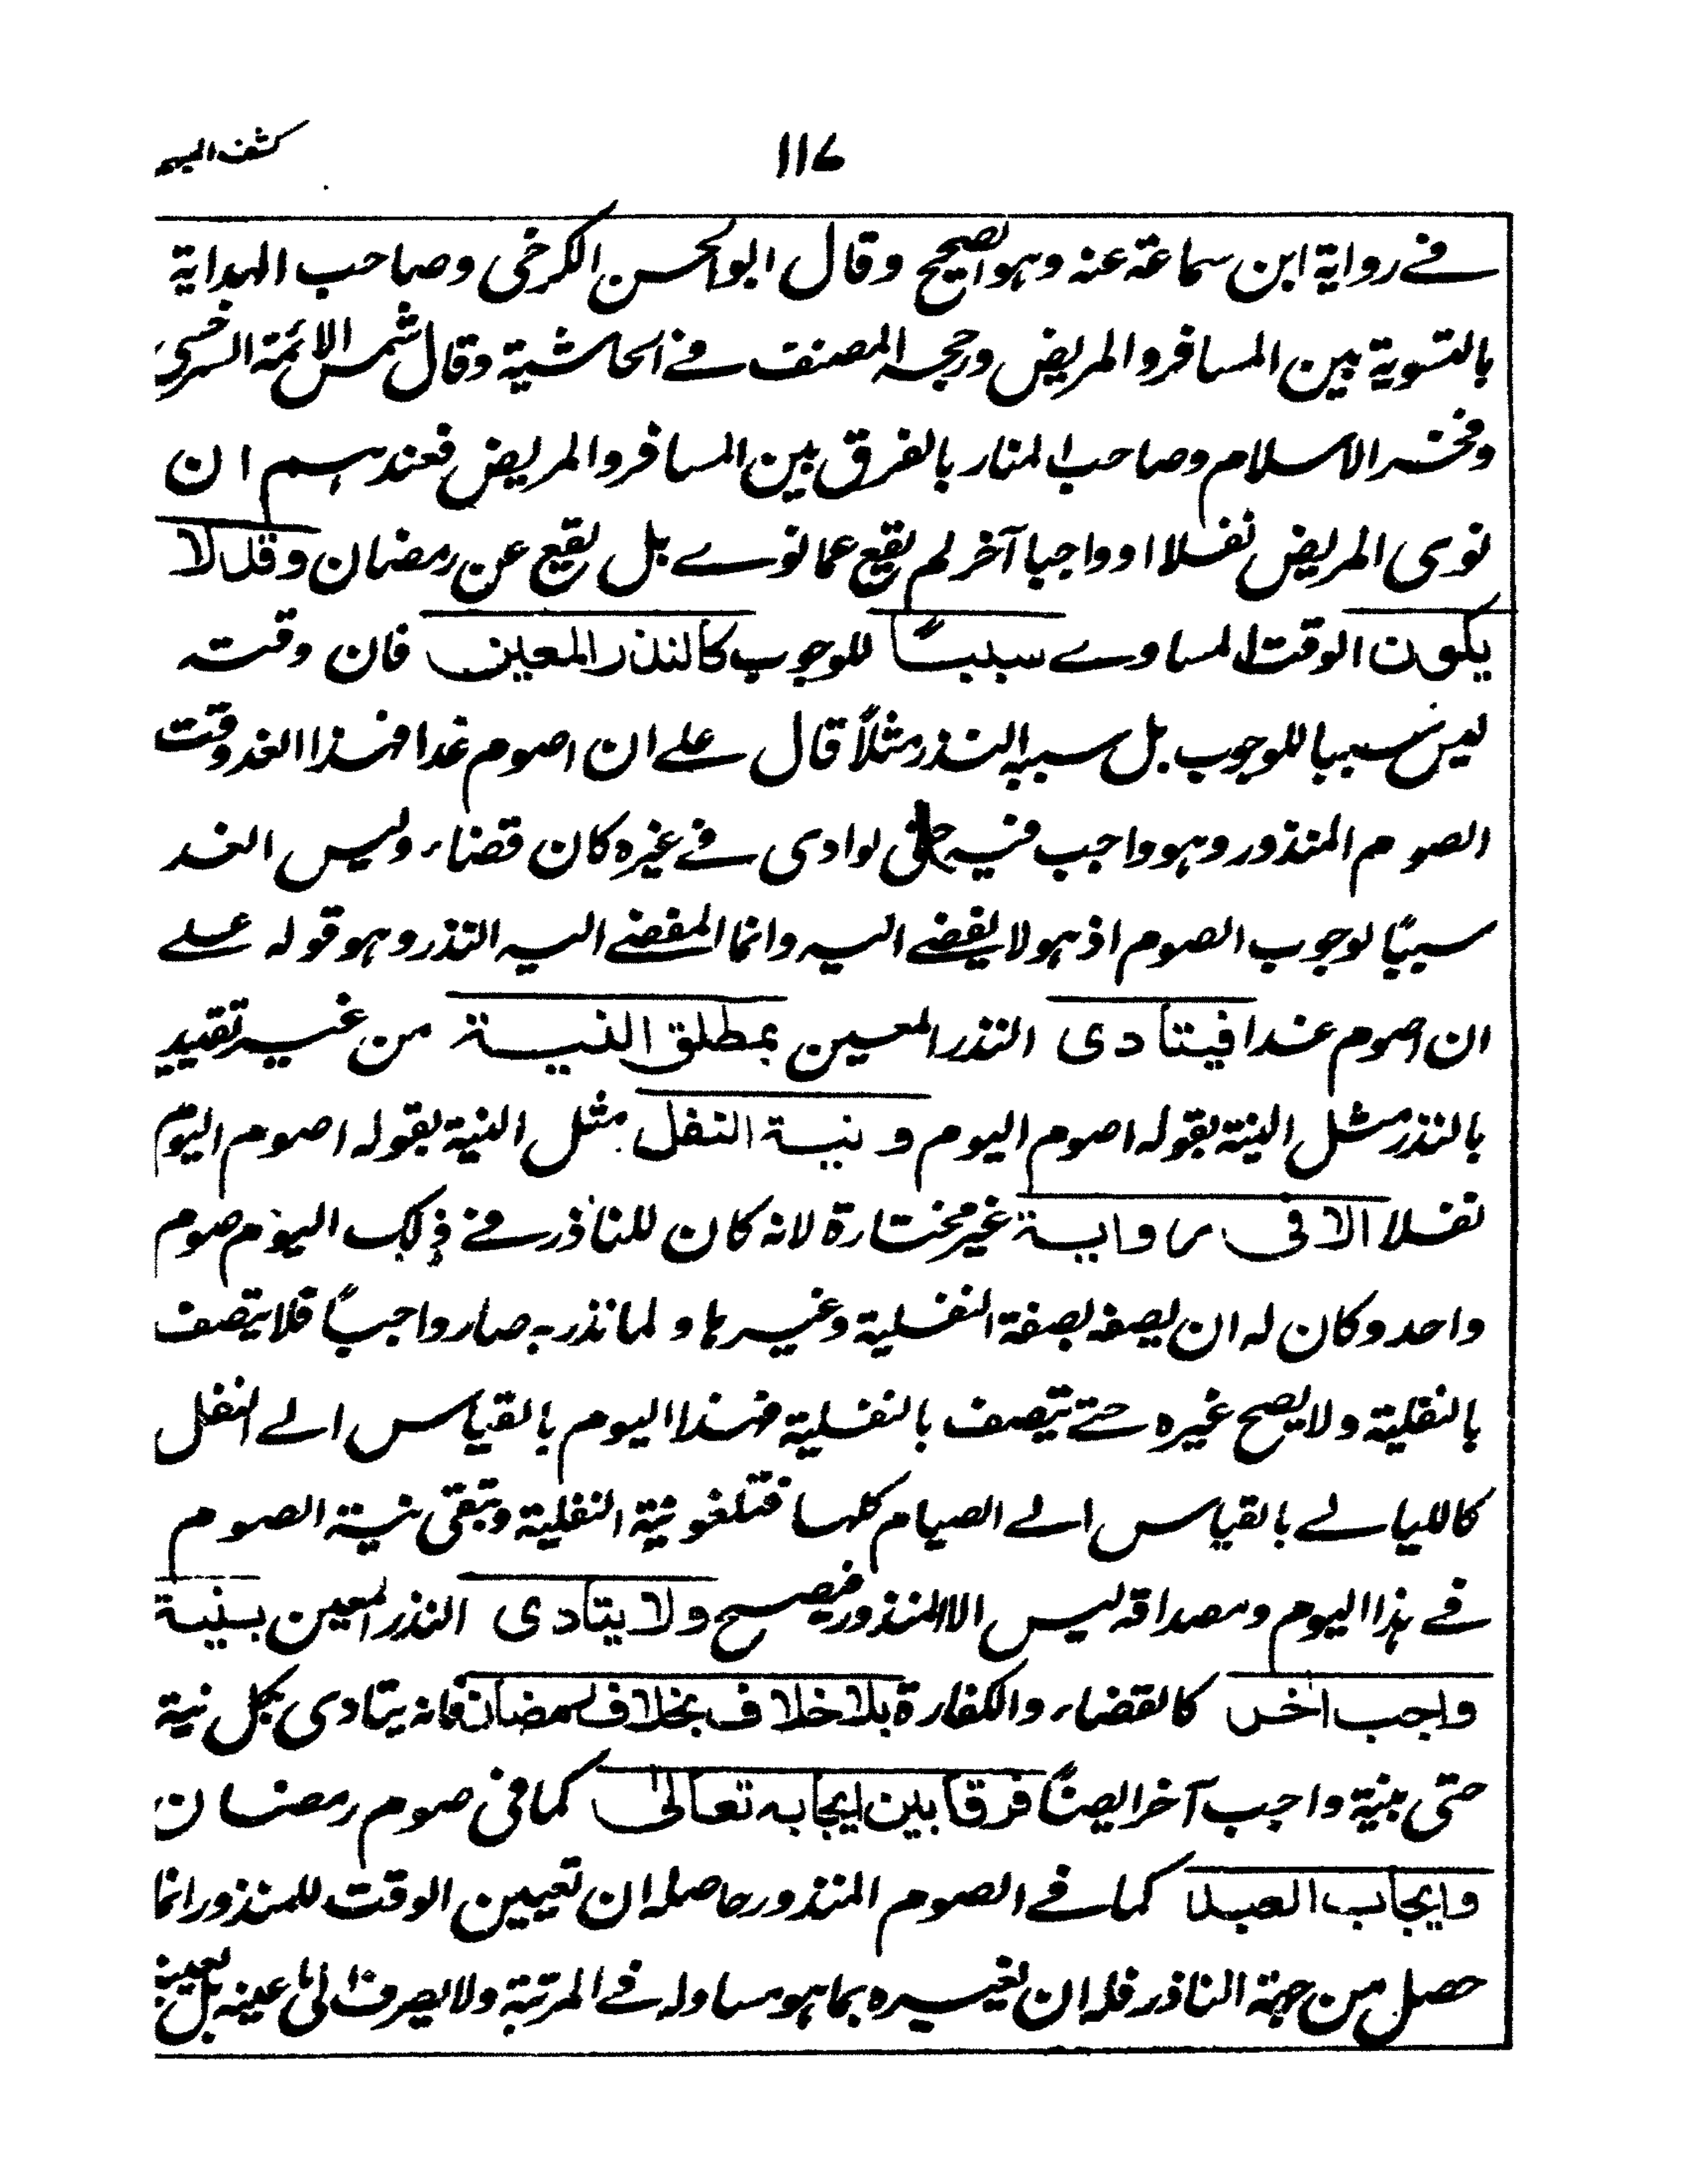 ١١٧
كشف المبهم
في رواية ابن سماعة عنه وهو الصحيح وقال ابو الحسن الكرخي وصاحب الهداية
بالتسوية بين المسافر والمريض ورجحه المصنف في الحاشية وقال شمس الائمة السرخسي
وفخر الاسلام وصاحب المنار بالفرق بين المسافر والمريض فعندهم ان
نوى المريض نفلا او واجبا آخر لم يقع عما نوى بل يقع عن رمضان وقد لا
يكون الوقت المساوي سببًا للوجوب كالنذر المعين فان وقته
ليس سببا للوجوب بل سببه النذر مثلاً قال علي ان اصوم غدا فهذا الغد وقت
الصوم المنذور وهو واجب فيه حتى لو ادى في غيره كان قضاء وليس الغد
سببًا لوجوب الصوم اذ هو لا يفضي اليه وانما المفضي اليه النذر وهو قوله علي
ان اصوم غدا فيتأدى النذر المعين بمطلق النية من غير تقييد
بالنذر مثل النية بقوله اصوم اليوم و نية النفل مثل النية بقوله اصوم اليوم
نفلا الا في رواية غير مختارة لانه كان للناذر في ذلك اليوم صوم
واحد وكان له ان يصفه بصفة النفلية وغيرها ولما نذر به صار واجبًا فلا يتصف
بالنفلية ولا يصح غيره حتى يتصف بالنفلية فهذا اليوم بالقياس الى النفل
كالليالي بالقياس الى الصيام كلها فتلغو نية النفلية وتبقى نية الصوم
في هذا اليوم ومصداقه ليس الا المنذور فيصح ولا يتادى النذر المعين بنية
واجب اخر كالقضاء والكفارة بلا خلاف بخلاف رمضان فانه يتادى بكل نية
حتى بنية واجب آخر ايضًا فرقًا بين ايجابه تعالىٰ كما في صوم رمضان
وايجاب العبد كما في الصوم المنذور حاصله ان تعيين الوقت للمنذور انما
حصل من جهة الناذر فله ان يغيره بما هو مساو له في المرتبة ولا يصرف الى ما عينه بل